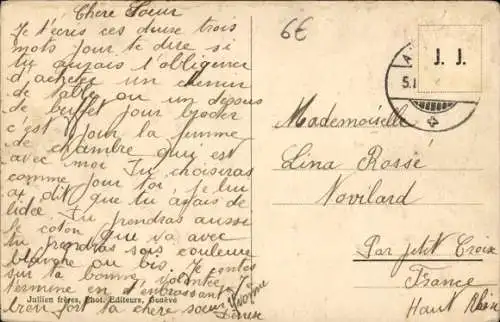 Chere Soeur
Je t'écris ces deux trois
mots pour te dire si
tu aurais l'obligence
d'acheter un chemin
de table ou un dessous
de buffet pour broder
c'est pour la femme
de chambre qui est
avec moi. Tu choisiras
comme pour toi, je lui
ai dit que tu avais de
l'idée. Tu prendras aussi
le coton qui va avec
tu prendras sois couleur
blanche ou bis. Je contes
sur ta bonne volontée
termine en t'embrassant
bien fort ta chère soeur
Yvonne
6€
J. J.
5.I
Mademoiselle
Lina Rossé
Novilard
Par petit Croix
France
Haut Rhin
Jullien frères, Phot. Editeurs, Genève